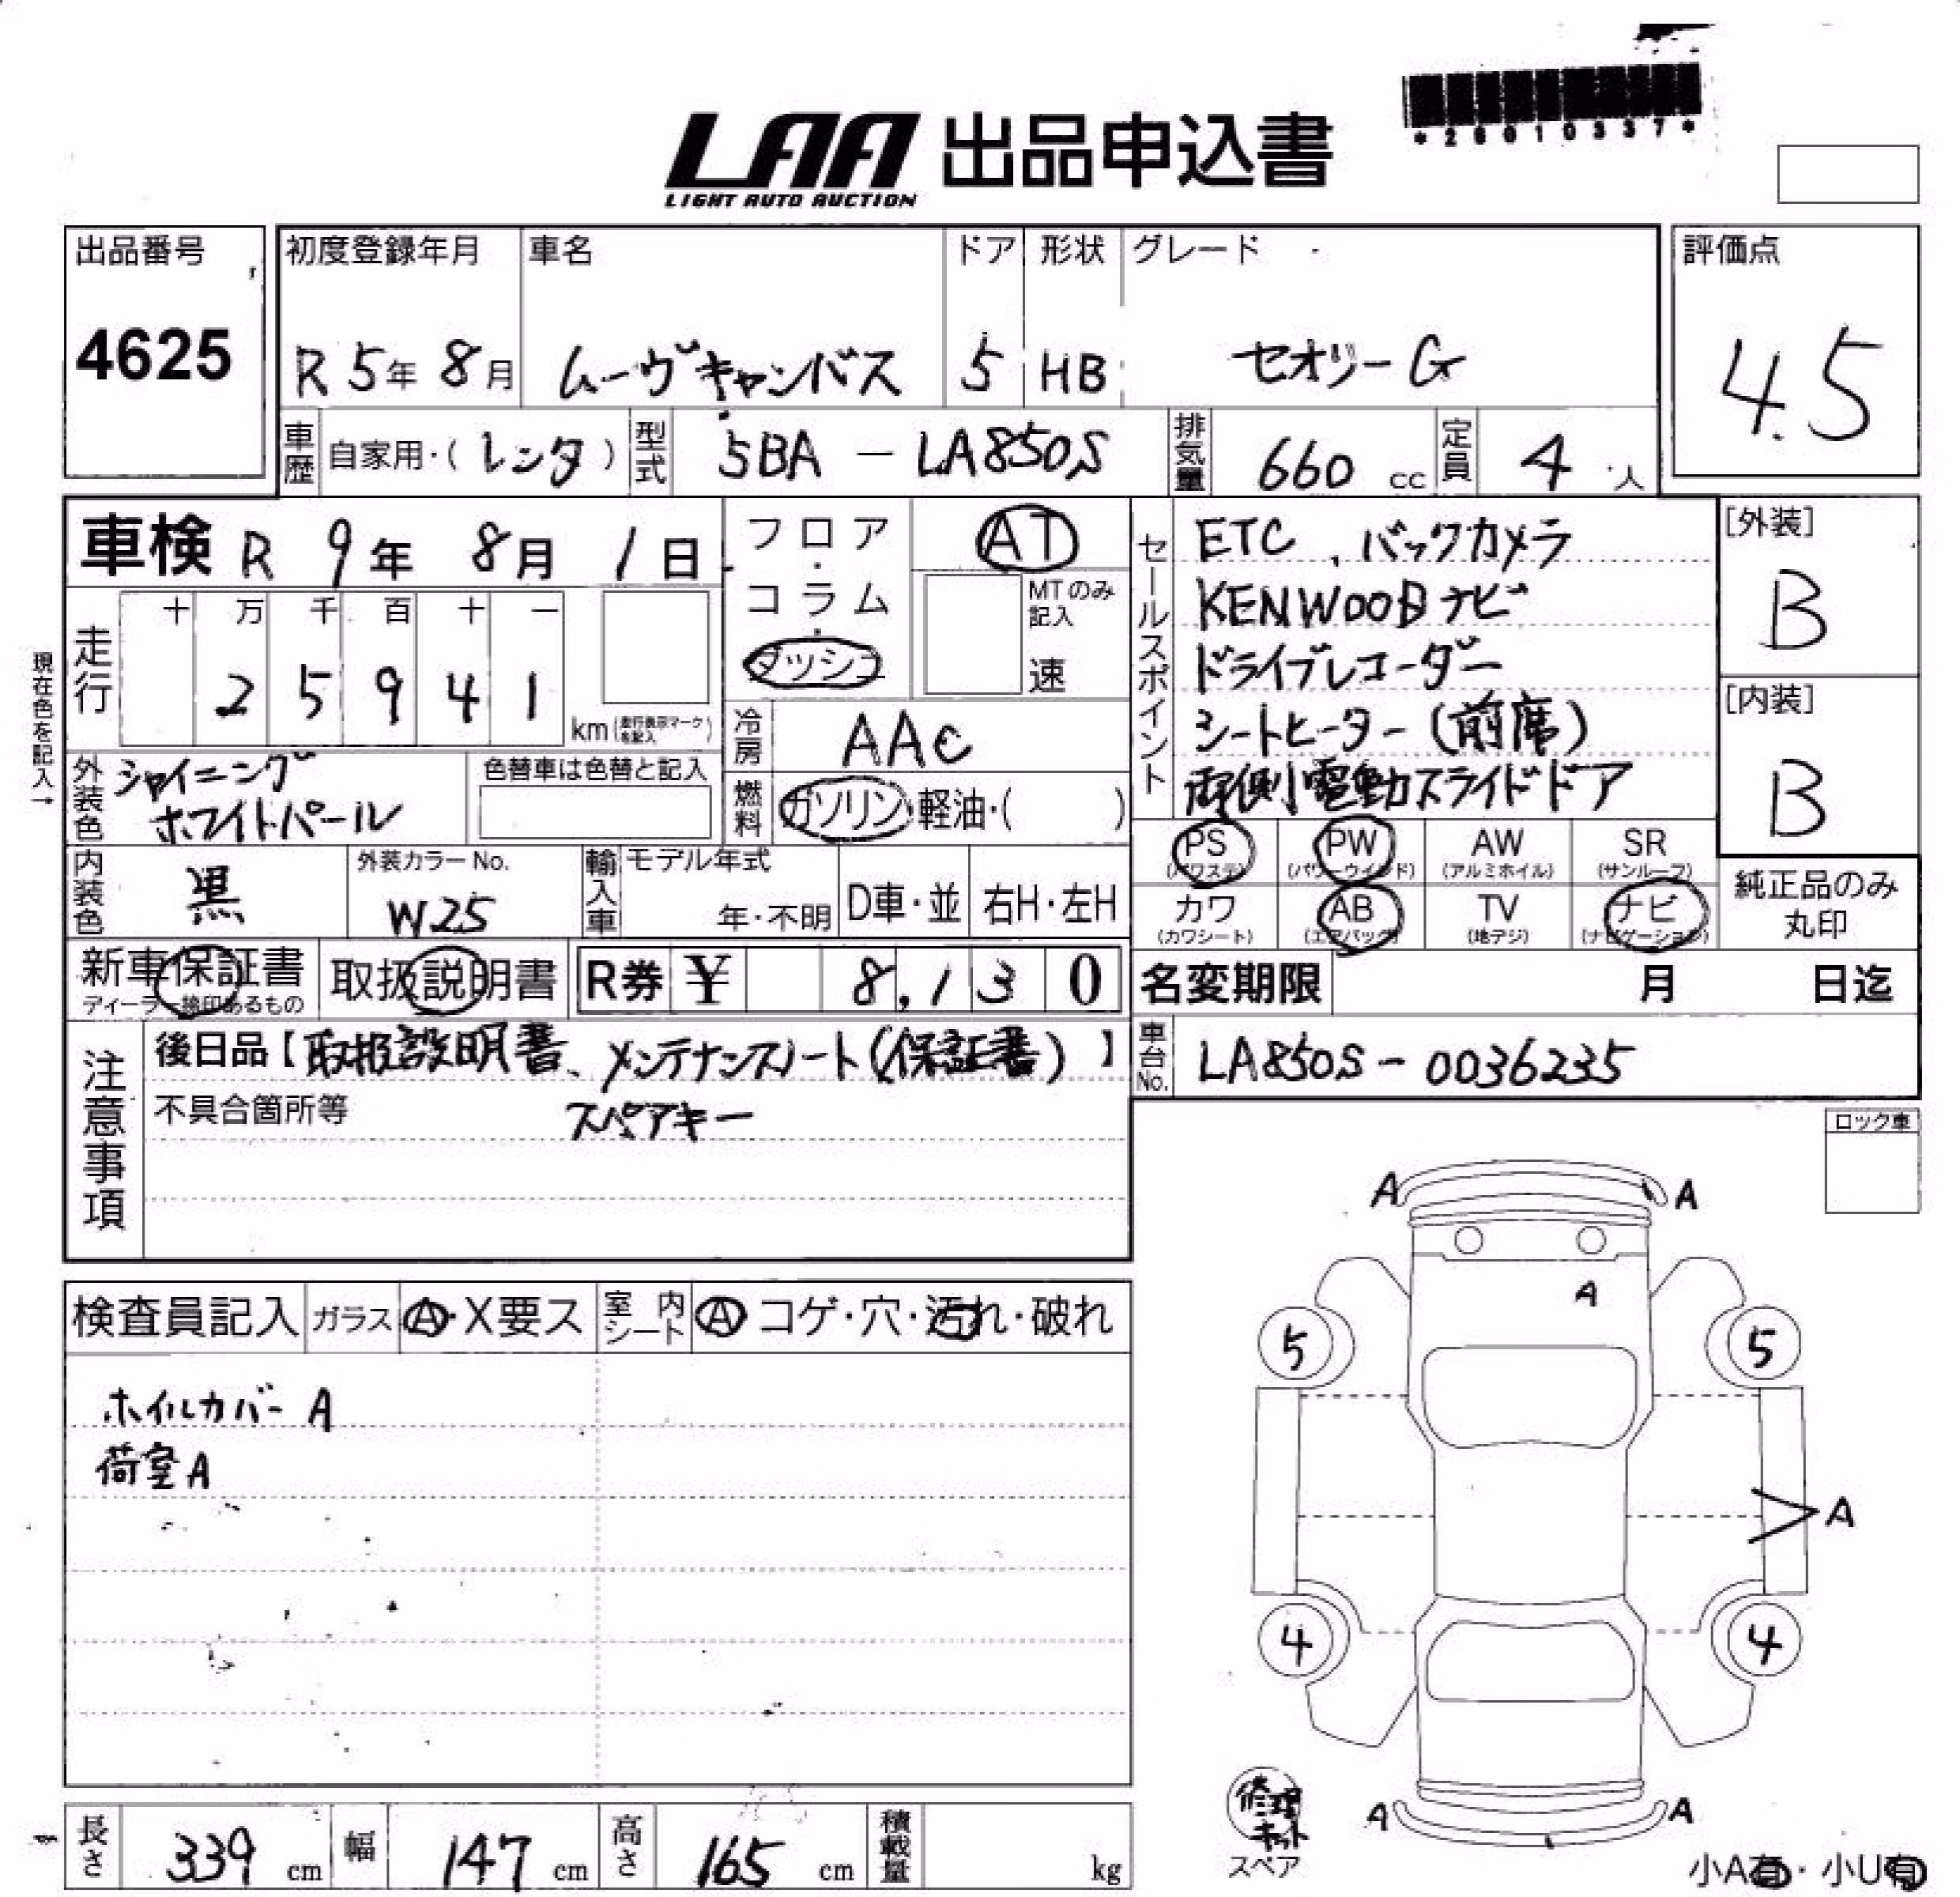 LAA 出品申込書
LIGHT AUTO AUCTION
出品番号
4625
初度登録年月
R 5年 8月
車名
ムーヴキャンバス
ドア
5
形状
HB
グレード
セオリーG
評価点
4.5
車歴 自家用・( レンタ )
型式 5BA - LA850S
排気量 660 cc
定員 4 人
車検 R 9年 8月 1日
フロア・コラム・ダッシュ
AT
MTのみ記入
速
現在色を記入→
走行
十 万 千 百 十 一
2 5 9 4 1
km (走行表示マークを記入)
冷房 AAC
燃料 ガソリン・軽油・( )
外装色 シャイニング
ホワイトパール
色替車は色替と記入
内装色 黒
外装カラーNo.
W25
輸入車 モデル年式
年・不明 D車・並 右H・左H
セールスポイント
ETC、バックカメラ
KENWOODナビ
ドライブレコーダー
シートヒーター(前席)
両側電動スライドドア
[外装]
B
[内装]
B
PS (パワステ) PW (パワーウインド) AW (アルミホイル) SR (サンルーフ)
カワ (カワシート) AB (エアバッグ) TV (地デジ) ナビ (ナビゲーション)
純正品のみ
丸印
新車保証書
ディーラー捺印あるもの
取扱説明書
R券 ¥ 8,130
名変期限 月 日迄
注意事項
後日品【取扱説明書、メンテナンスノート(保証書)】
不具合箇所等 スペアキー
車台No. LA850S - 0036235
ロック車
検査員記入 ガラス A・X要ス 室内シート A コゲ・穴・汚れ・破れ
ホイルカバー A
荷室 A
A A
A
5 5
A
4 4
修理キット
スペア
A A
小A有・小U有
長さ 339 cm 幅 147 cm 高さ 165 cm 積載量 kg